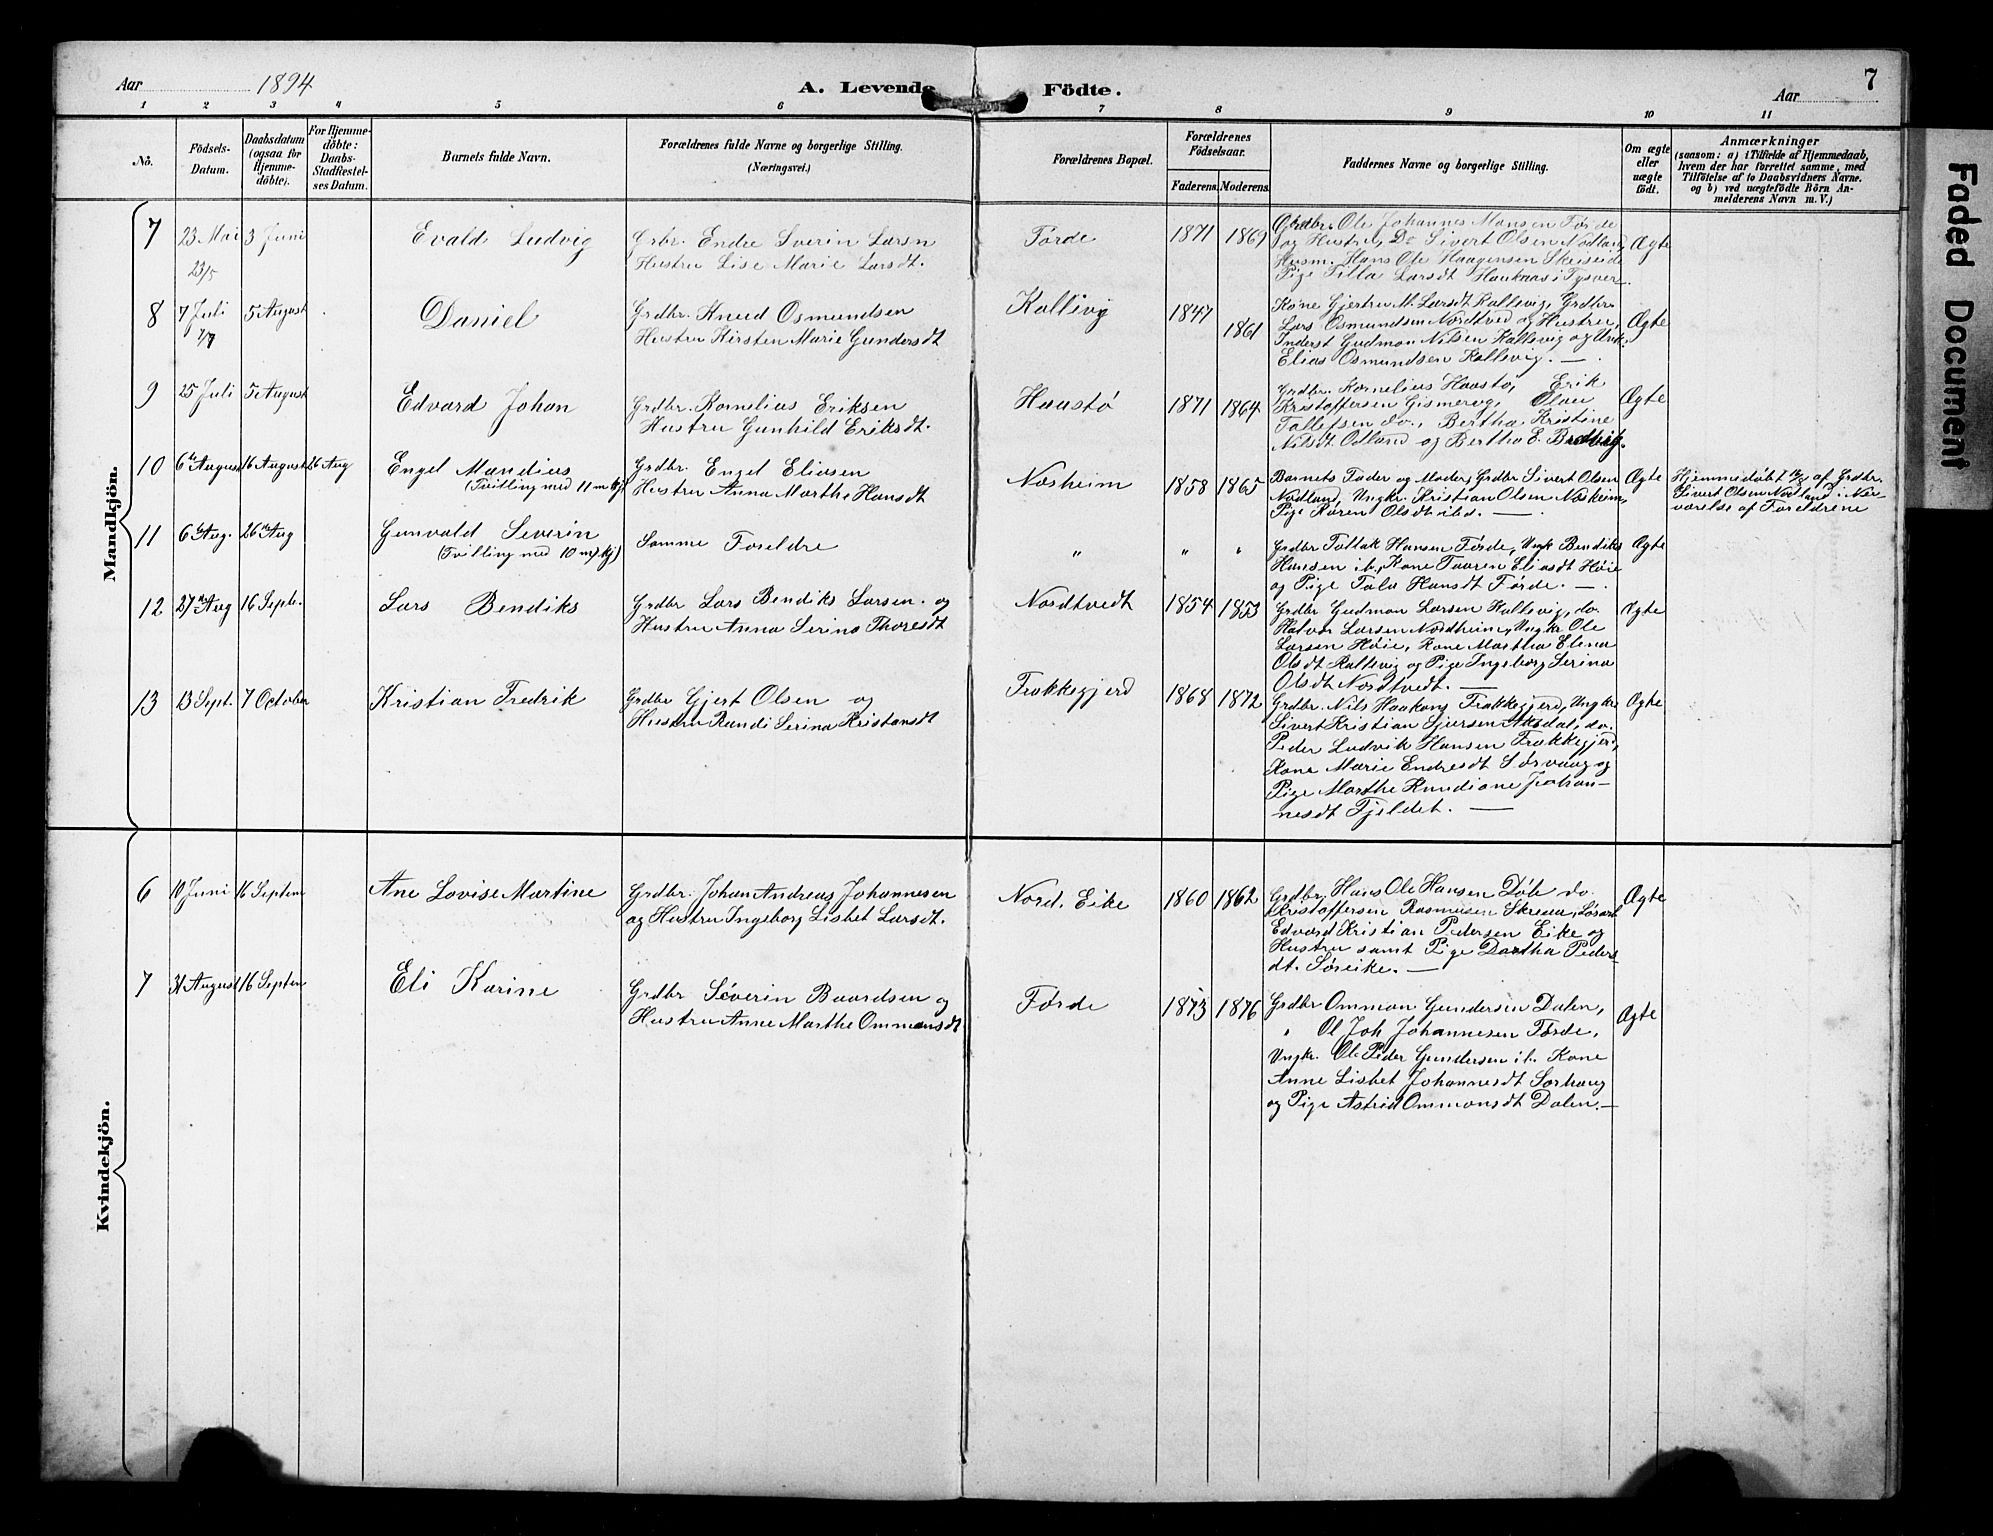 Aar 1894 A. Levende Födte. Aar 7
1 2 3 4 5 6 7 8 9 10 11
No.
Födsels-
Datum.
Daabsdatum
(ogsaa for
Hjemme-
döbte).
For Hjemme-
döbte:
Daabs-
Stadfæstel-
ses Datum.
Barnets fulde Navn.
Forældrenes fulde Navne og borgerlige Stilling.
(Næringsvei.)
Forældrenes Bopæl.
Forældrenes
Födselsaar.
Faderens. Moderens.
Faddernes Navne og borgerlige Stilling.
Om ægte
eller
uægte
födt.
Anmærkninger
(saasom: a) i Tilfælde af Hjemmedaab,
hvem der har forrettet samme, med
Tilföielse af to Daabsvidners Navne.
og b) ved uægtefödte Börn An-
melderens Navn m. V.)
Mandkjön.
7 23 Mai 3 Juni Evald Ludvig
23/5
Grbr. Endre Sverin Larsn
Hustru Lise Marie Larsdt.
Førde 1871 1869
Grdbr. Ole Johannes Hansen Førde
og Hustru, Do Sivert Olsen Nodland,
Husm. Hans Ole Haagensen Skeiseid
Pige Tilla Larsdt Hauknas i Tysvær
Ægte
8 7 Juli 5 August Daniel
7/7
Grdbr. Knud Osmundsen
Hustru Kirsten Marie Gundersdt
Kallevig 1847 1861
Kone Gjertru M. Larsdt Kallevig, Grdbr.
Lars Osmundsen Nordtved og Hustru,
Inderst Gudmon Nilsen Kallevig og Ungk.
Elias Osmundsen Kallevig. —
Ægte
9 25 Juli 5 August Edvard Johan
Grdbr. Kornelius Eriksen
Hustru Gunhild Eriksdt.
Haustø 1871 1864
Grdbr. Kornelius Haustø, Erik
Kristoffersen Gismervig, Olau
Tallefsen do., Bertha Kristine
Nilsdt Odland og Bertha E. Bredvig.
Ægte
10 6te August 16 August 26 Aug Engel Mandius
(Tvilling med 11 m kj)
Grdbr. Engel Eliasen
Hustru Anna Marthe Hansdt
Nøsheim 1858 1865
Barnets Fader og Moder, Grdbr Sivert Olsen
Nodland, Ungkr. Kristian Olsen Nøsheim,
Pige Karen Olsdt ibd. —
Ægte
Hjemmedøbt 16/8 af Grdbr.
Sivert Olsen Nodland i Nær-
værelse af Foreldrene
11 6te Aug. 26de Aug Gunvald Severin
(Tvilling med 10 m kj)
Samme Foreldre
" " "
Grdbr Tollak Hansen Førde, Ungk Bendiks
Hansen ib., Kone Taaren Eliasdt Høie
og Pige Tala Hansdt Førde. —
Ægte
12 27de Aug 16 Septr. Lars Bendiks
Grdbr Lars Bendiks Larsen og
Hustru Anna Serina Thoresdt
Nordtvedt 1854 1853
Grdbr Gudmon Larsen Kallevig, do.
Halvor Larsen Nordheim, Ungkr Ole
Larsen Høie, Kone Martha Elena
Olsdt Kallevig og Pige Ingeborg Serina
Olsdt Nordtvedt. —
Ægte
13 13 Sept. 7 October Kristian Fredrik
Grdbr Gjert Olsen og
Hustru Randi Serina Kristansdt
Frakkegjerd 1868 1872
Grdbr. Nils Haakons Frakkegjerd, Ungkr
Sivert Kristian Sjursen Aksdal, do.
Peder Ludvik Hansen Frakkegjerd,
Kone Marie Endresdt Sørvaag og
Pige Marthe Knudiane Johan-
nesdt Fjeldet. —
Ægte
Kvindekjön.
6 10 Juni 16 Septem Ane Lovise Martine
Grdbr. Johan Andreas Johannesen
og Hustru Ingeborg Lisbet Larsdt.
Nord. Eike 1860 1862
Grdbr. Hans Ole Hansen Døle do.
Kristoffersen Rasmusen Skreaa,
Edvard Kristian Pedersen Eike og
Hustru samt Pige Dortha Peders-
dt. Søreike. —
Ægte
7 31 August 16 Septem Eli Karine
Grdbr Severin Baardsen og
Hustru Anne Marthe Ommonsdt
Førde 1873 1876
Grdbr Ommon Gundersen Dalen,
" Ol Joh Johannesen Førde,
Ungkr. Ole Peder Gundersen ib. Kone
Anne Lisbet Johannesdt Sørhaug
og Pige Astrid Ommonsdt Dalen. —
Ægte
Faded Document